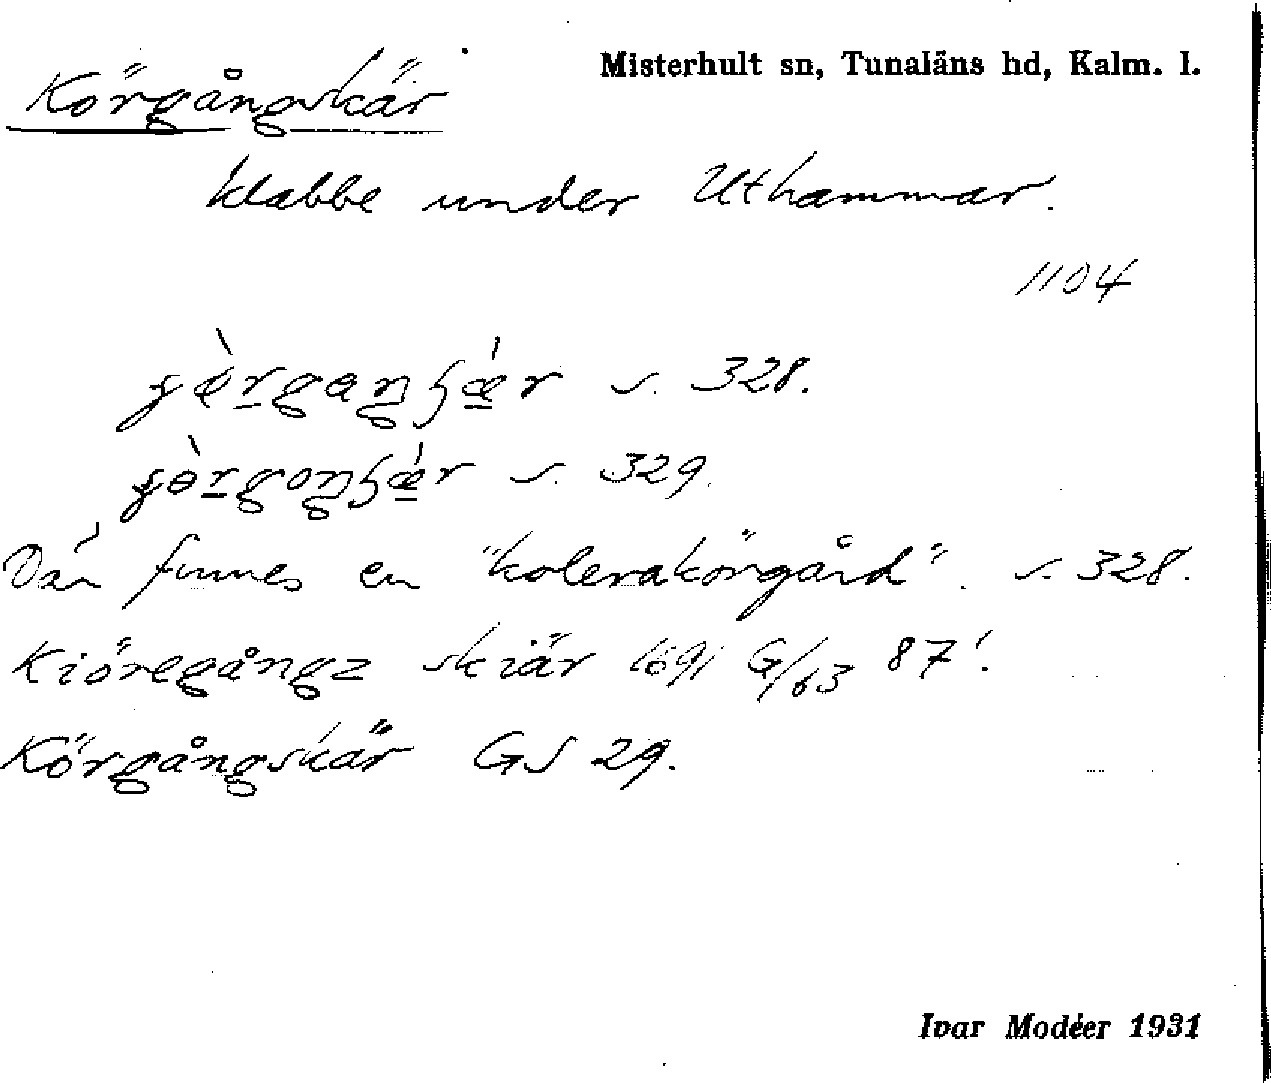 Körgångskär
Misterhult sn, Tunaläns hd, Kalm. l.
klabbe under Uthammar.
1104
s. 328.
s. 329.
Där finnes en "kolerakörgård". s. 328.
Kiöregångz skiär 1691 G/63 87'.
Körgångskär GS 29.
Ivar Modéer 1931